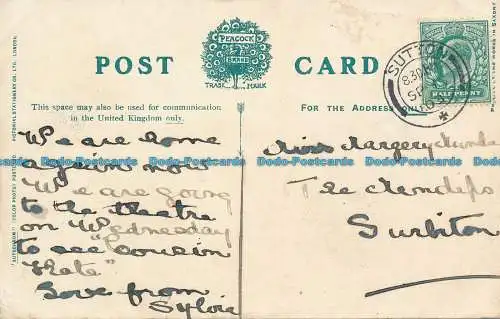 PEACOCK
BRAND
TRADE MARK
POST CARD
This space may also be used for communication
in the United Kingdom only.
FOR THE ADDRESS ONLY
We are home
again now
We are going
to the theatre
on Wednesday
to see "Cousin
Kate"
Love from
Sylvia
Miss Margery
The
Surbiton
SUTTON
8.30 PM
HALF PENNY
Dodo-Postcards Dodo-Postcards Dodo-Postcards Dodo-Postcards